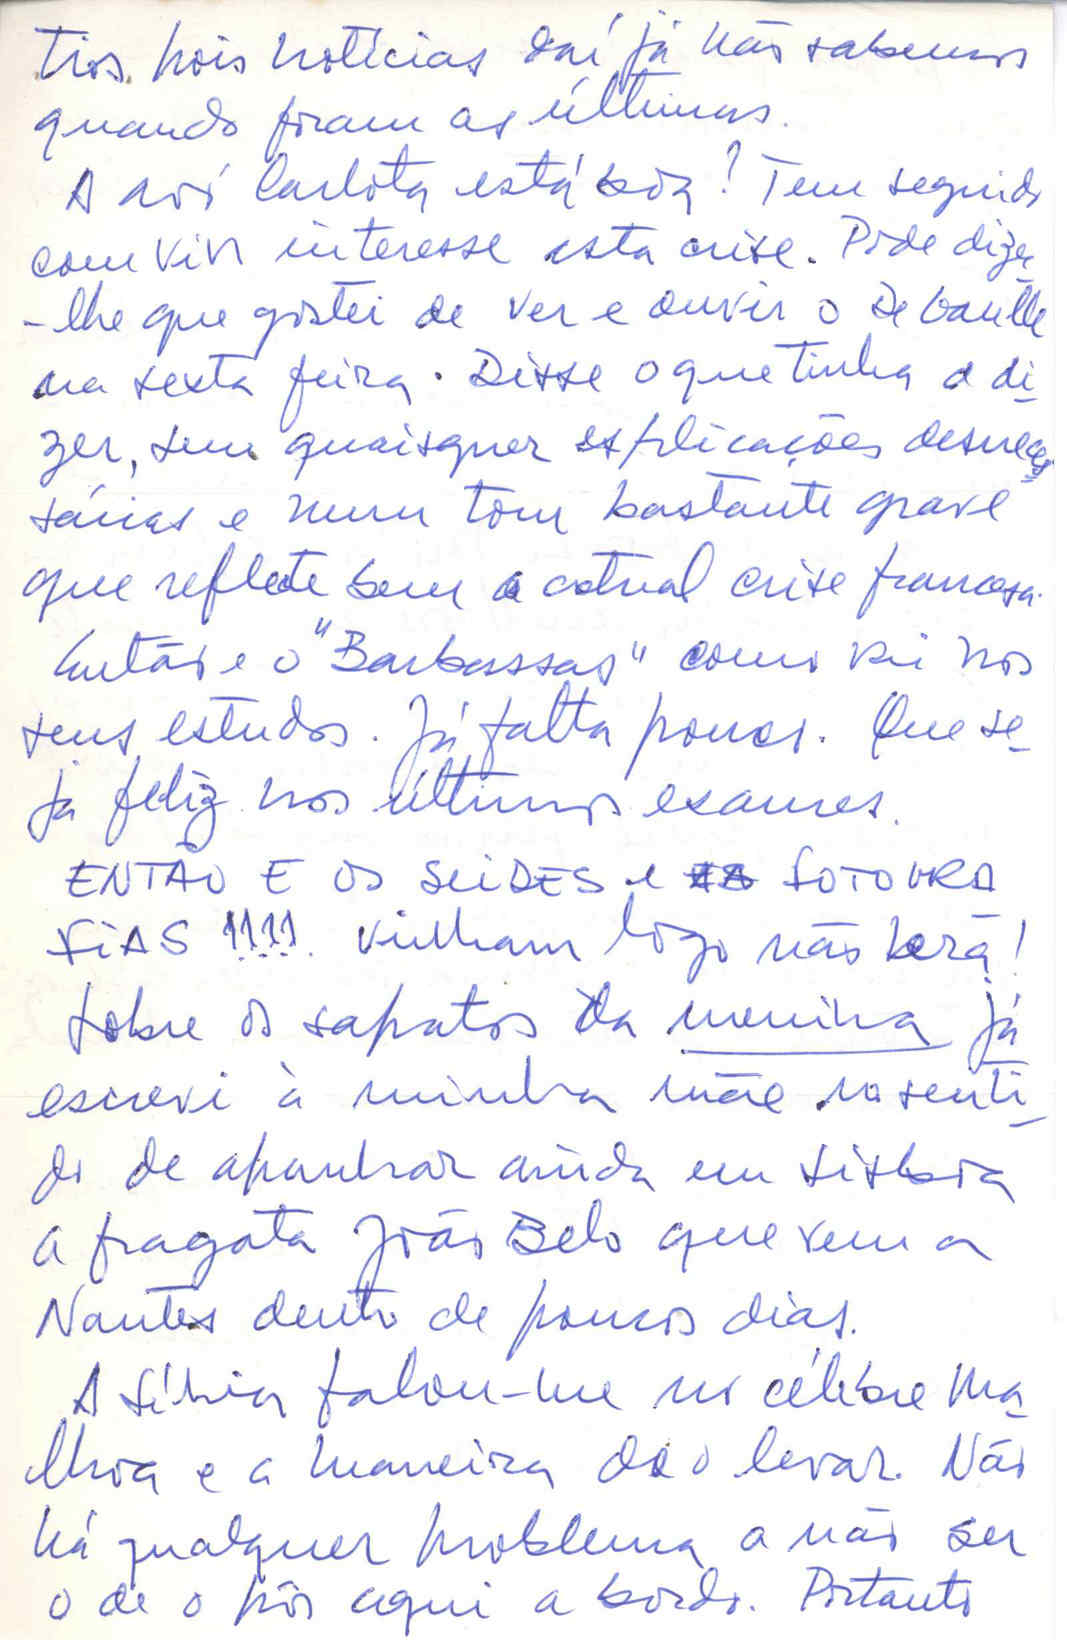 tros, pois notícias daí já não sabemos
quando foram as últimas.
A avó Carlota está boa? Tem seguido
com vivo interesse esta crise. Pode dizer
-lhe que gostei de ver e ouvir o De Gaulle
na sexta feira. Disse o que tinha a di-
zer, sem quaisquer explicações desneces
sárias e num tom bastante grave
que reflete bem a actual crise francesa.
Então e o "Barbassas" como vai nos
seus estudos. Já falta pouco. Que se-
ja feliz nos últimos exames.
ENTÃO E OS SLIDES e FOTOGRA
FIAS !!!! Venham logo não será!
Sobre os sapatos da menina já
escrevi à minha mãe no senti-
do de apanhar ainda em Lisboa
a fragata João Belo que vem a
Nantes dentro de poucos dias.
A Sílvia falou-me no célebre Ma-
lhoa e a maneira de o levar. Não
há qualquer problema a não ser
o de o pôr aqui a bordo. Portanto